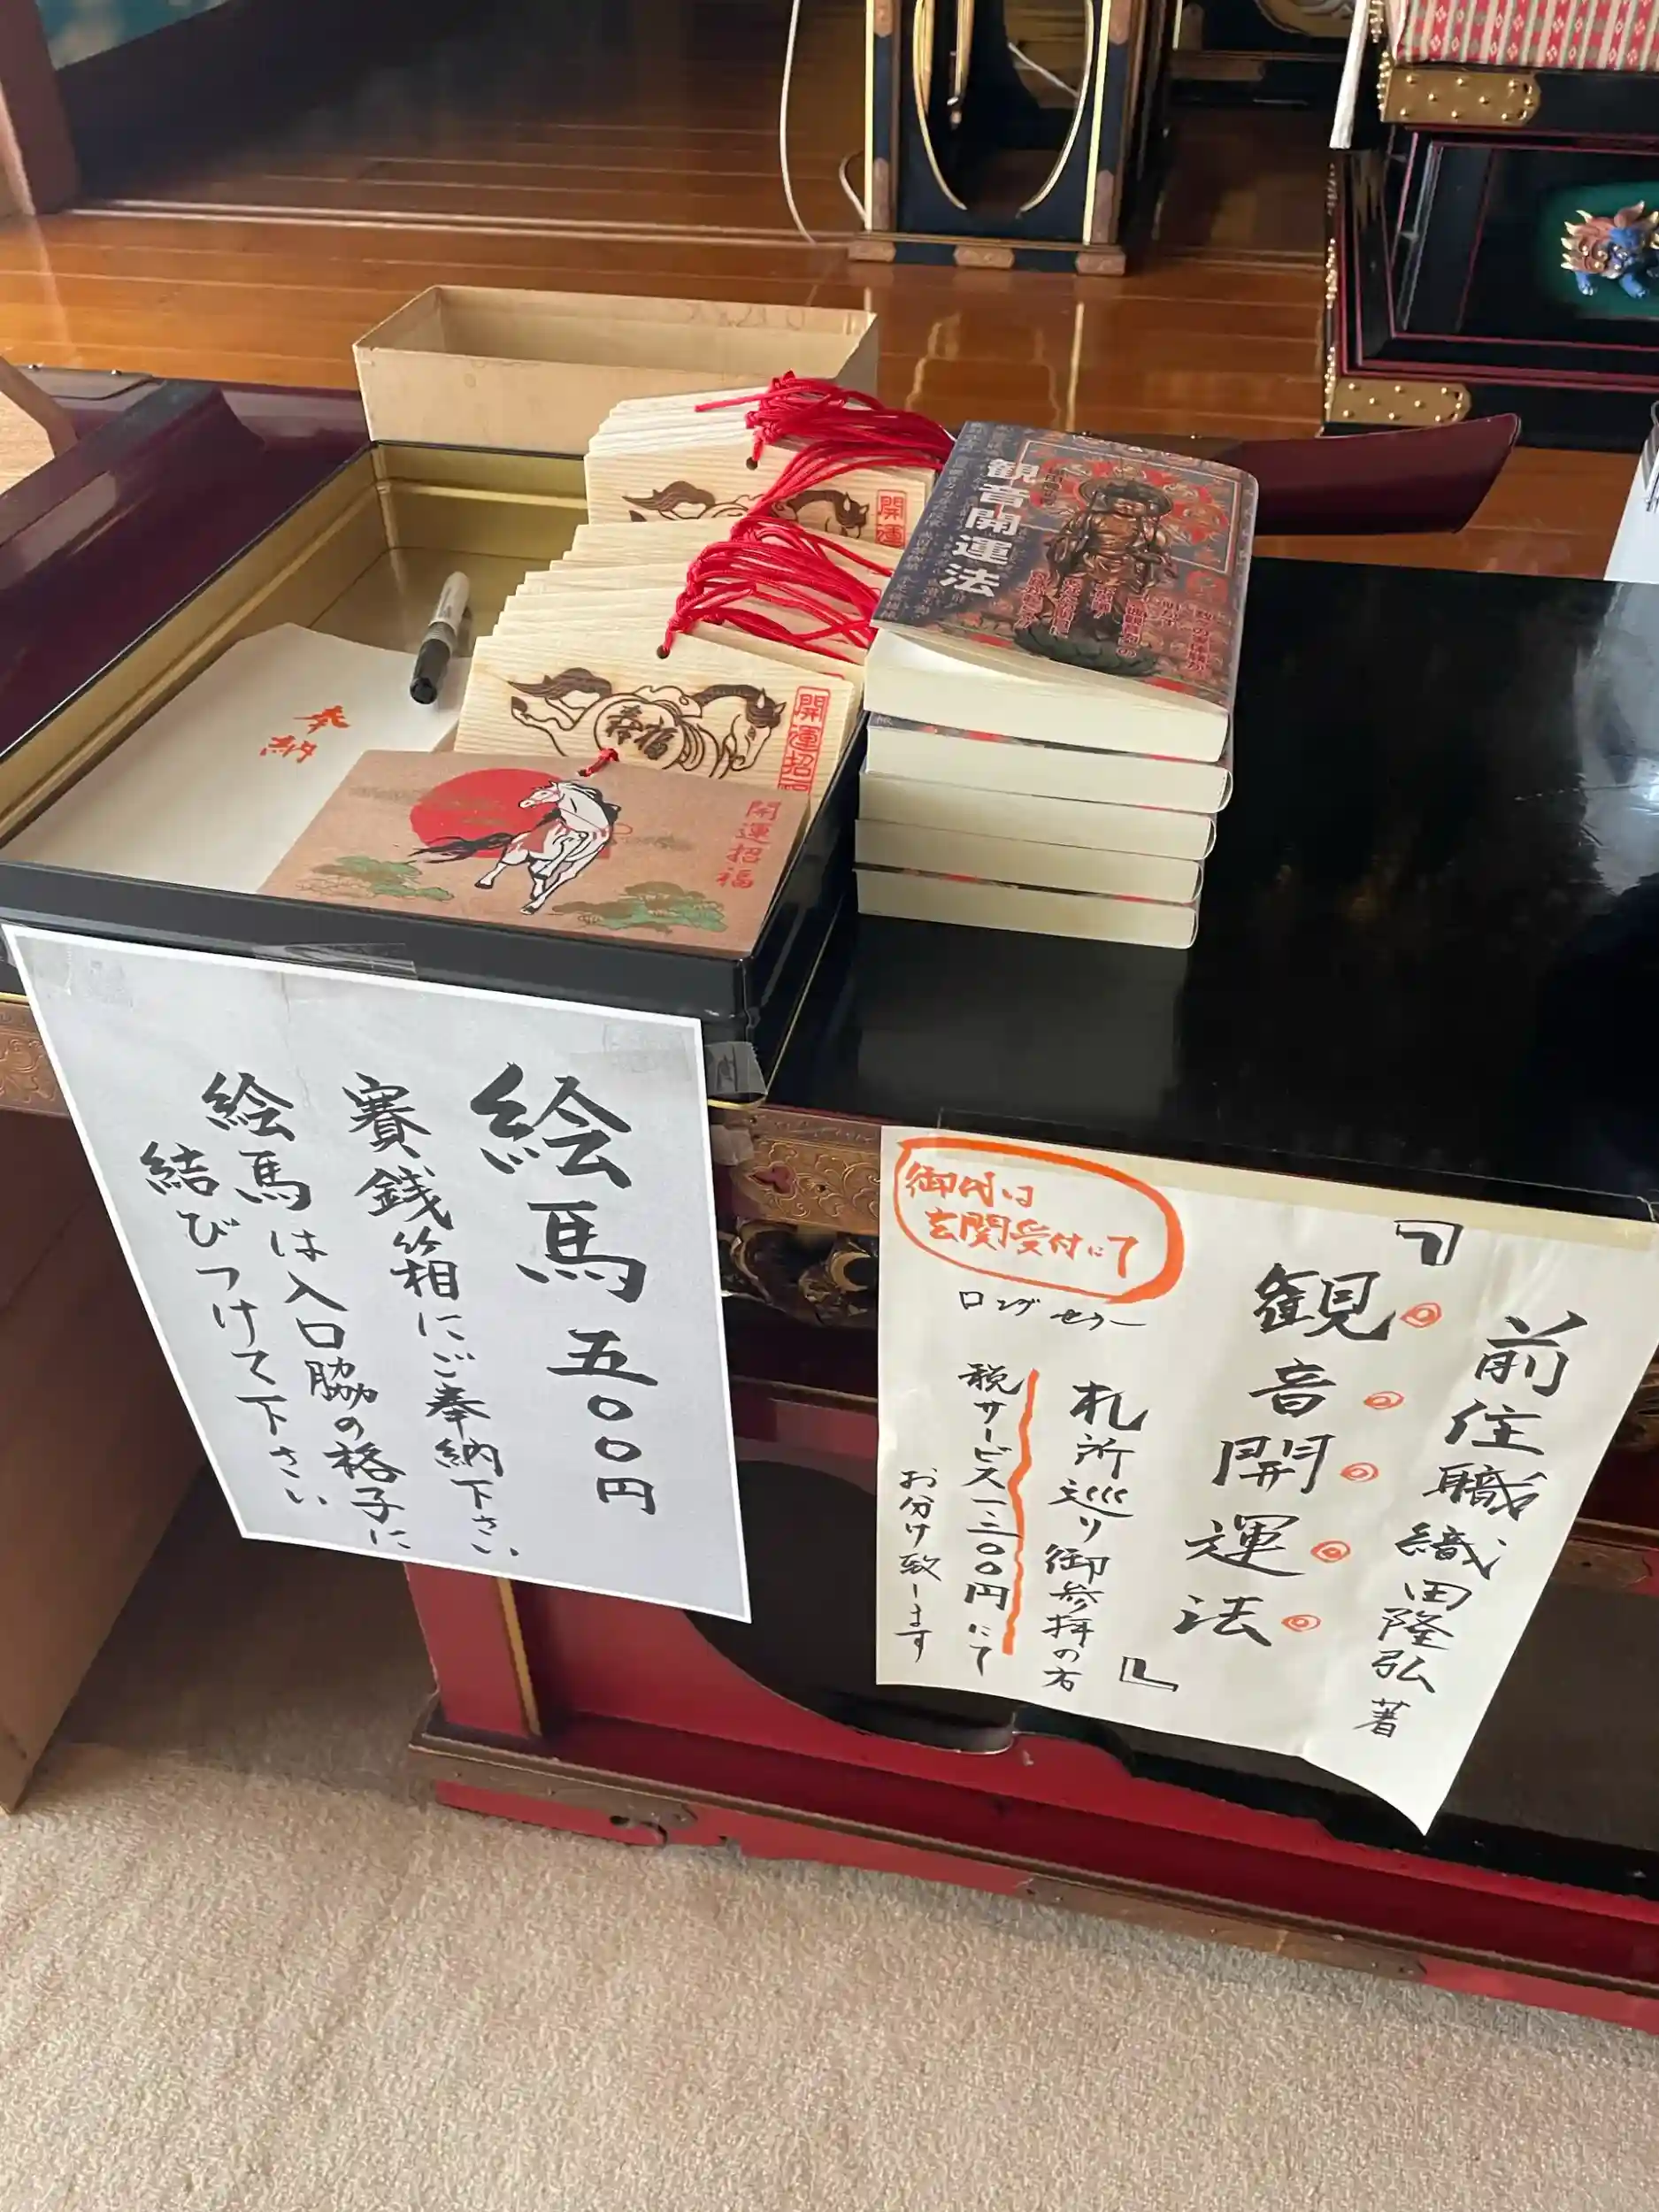 観音開運法
開運
開運招福
奉納
開運招福
絵馬 五〇〇円
賽銭箱にご奉納下さい
絵馬は入口脇の格子に
結びつけて下さい
前住職 織田隆弘 著
『観音開運法』
御代は
玄関受付にて
ロングセラー
札所巡り御参拝の方
税サービス一三〇〇円にて
お分け致します